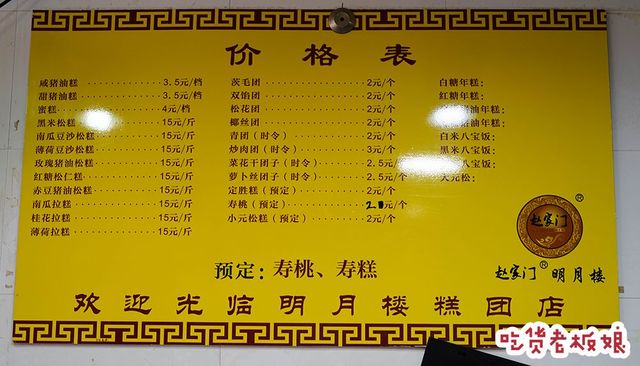 价格表
咸猪油糕 3.5元/档
甜猪油糕 3.5元/档
蜜糕 4元/档
黑米松糕 15元/斤
南瓜豆沙松糕 15元/斤
薄荷豆沙松糕 15元/斤
玫瑰猪油松糕 15元/斤
红糖松仁糕 15元/斤
赤豆猪油松糕 15元/斤
南瓜拉糕 15元/斤
桂花拉糕 15元/斤
薄荷拉糕 15元/斤
茨毛团 2元/个
双馅团 2元/个
松花团 2元/个
椰丝团 2元/个
青团（时令） 2元/个
炒肉团（时令） 3元/个
菜花干团子（时令） 2.5元/个
萝卜丝团子（时令） 2.5元/个
定胜糕（预定） 2元/个
寿桃（预定） 元/个
小元松糕（预定） 2元/个
白糖年糕：
红糖年糕：
猪油年糕：
油年糕：
白米八宝饭：
黑米八宝饭：
大元松：
赵家门®
赵家门®明月楼
预定：寿桃、寿糕
欢迎光临明月楼糕团店
吃货老板娘